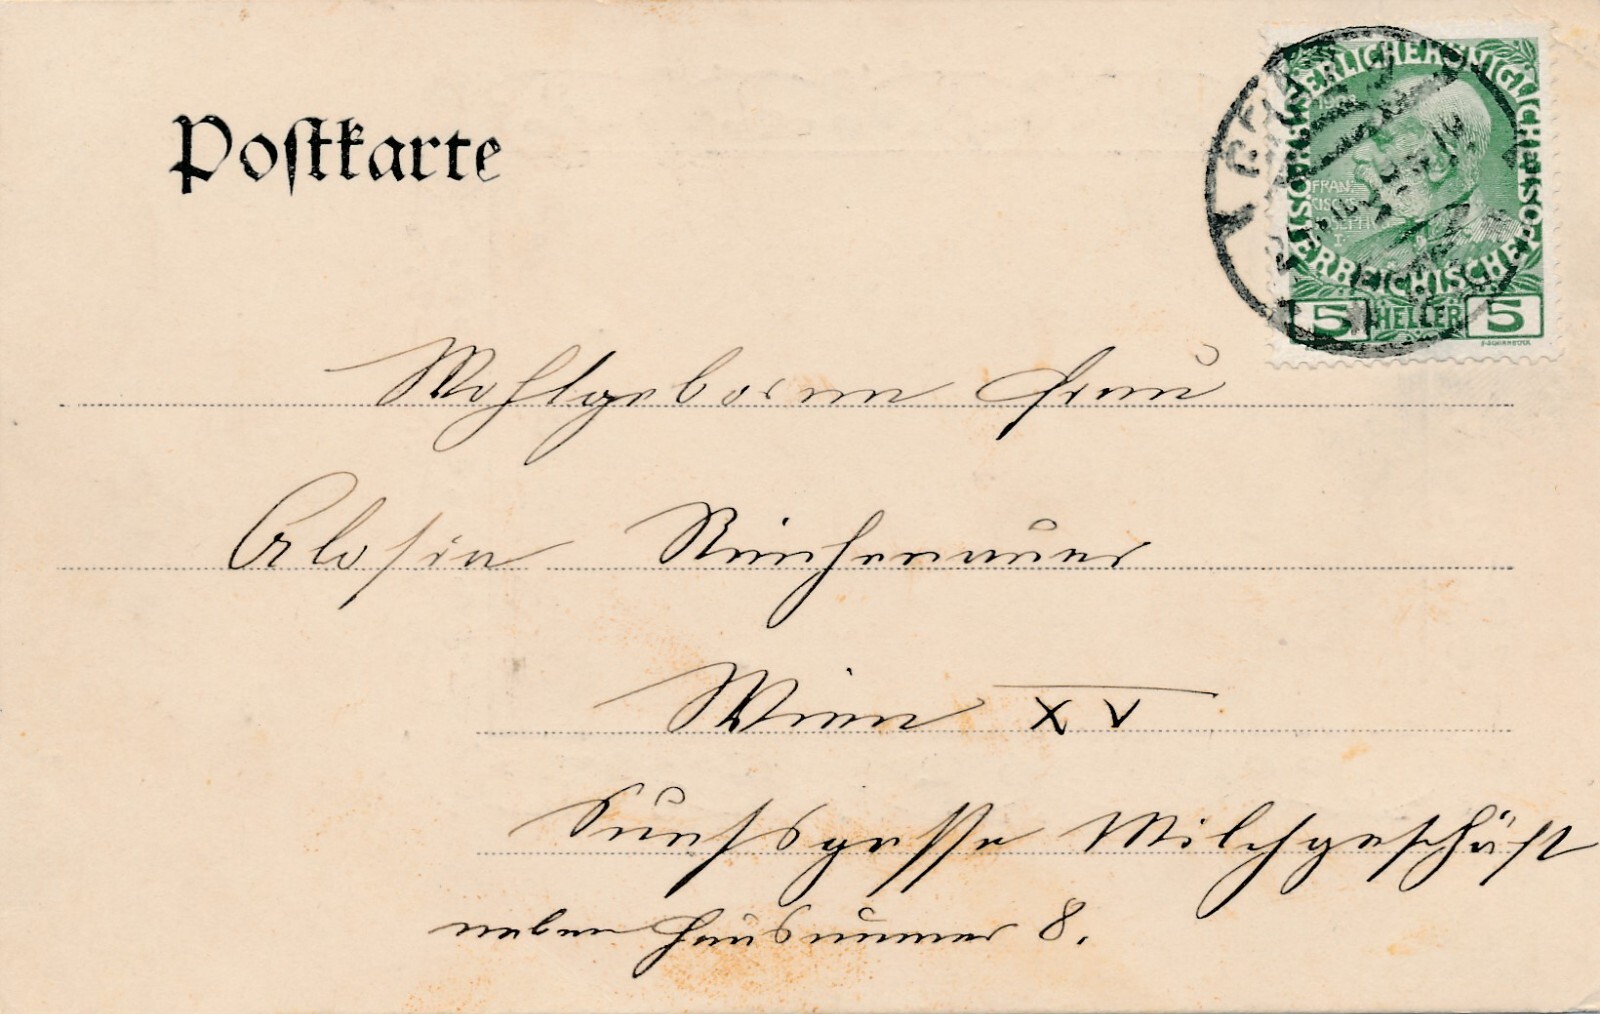 Postkarte
KAISERLICHE KÖNIGLICHE
ÖSTERREICHISCHE POST
1908
FRAN
CISCUS
IOSEPH
I
5 HELLER 5
Wohlgeboren Frau
Alosia Reichenauer
Wien XV
Fuchsgasse Milchgeschäft
neben Hausnummer 8.